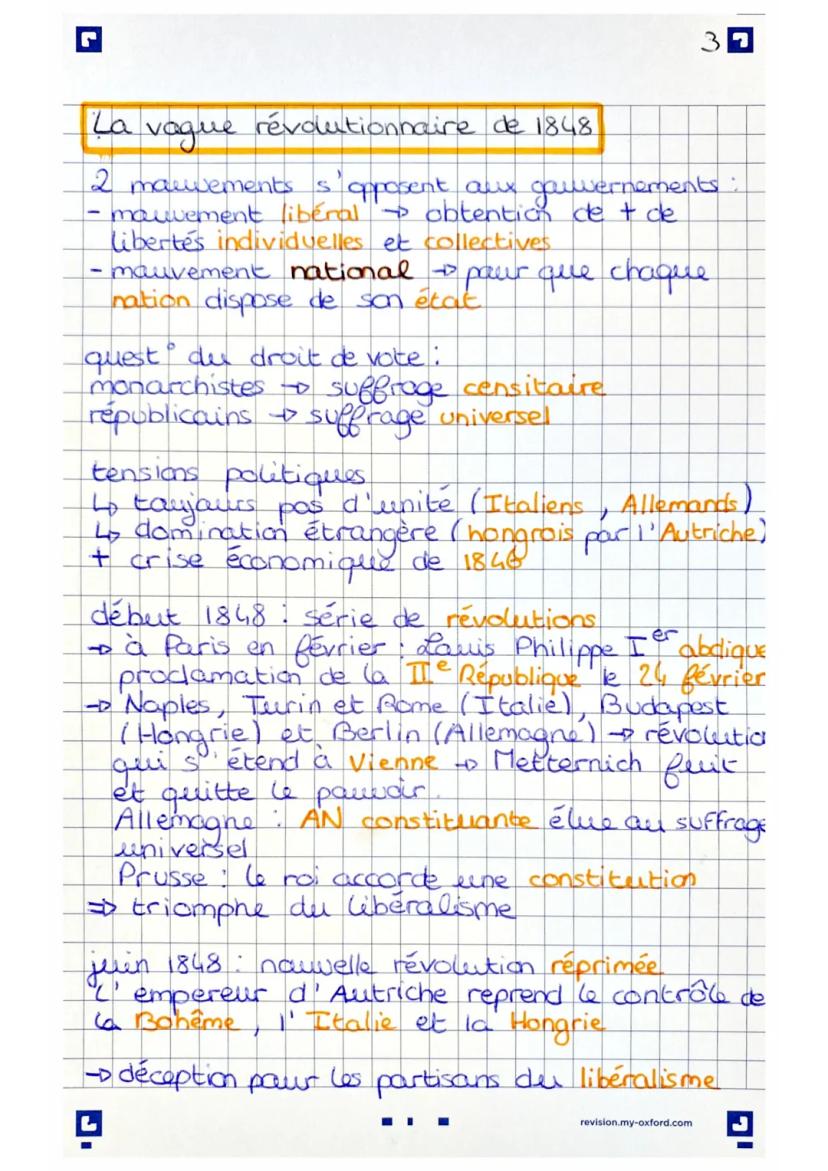 3
La vague révolutionnaire de 1848
2 mouvements s'opposent aux gouvernements :
- mouvement libéral → obtention de + de
libertés individuelles et collectives
- mouvement national → pour que chaque
nation dispose de son état
quest° du droit de vote :
monarchistes → suffrage censitaire
républicains → suffrage universel
tensions politiques
↳ toujours pas d'unité (Italiens, Allemands)
↳ domination étrangère (hongrois par l'Autriche)
+ crise économique de 1846
début 1848 : série de révolutions
→ à Paris en février : Louis Philippe Ier abdique
proclamation de la IIe République le 24 février
→ Naples, Turin et Rome (Italie), Budapest
(Hongrie) et Berlin (Allemagne) → révolutio
qui s'étend à Vienne → Metternich fuit
et quitte le pouvoir.
Allemagne : AN constituante élue au suffrage
universel
Prusse : le roi accorde une constitution
⇒ triomphe du libéralisme
juin 1848 : nouvelle révolution réprimée
L'empereur d'Autriche reprend le contrôle de
la Bohême, l'Italie et la Hongrie
→ déception pour les partisans du libéralisme
revision.my-oxford.com